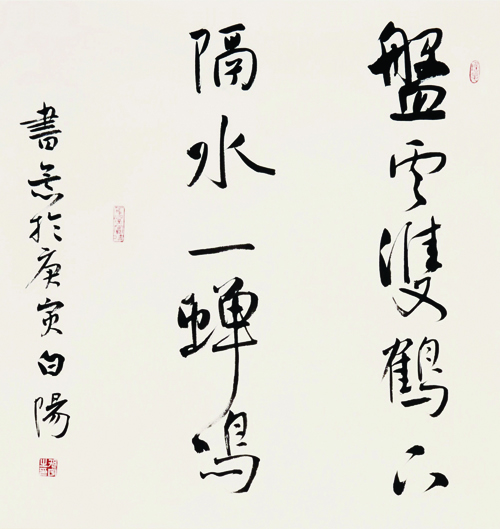 盤雲雙鶴下
隔水一蟬鳴
書於庚寅白陽